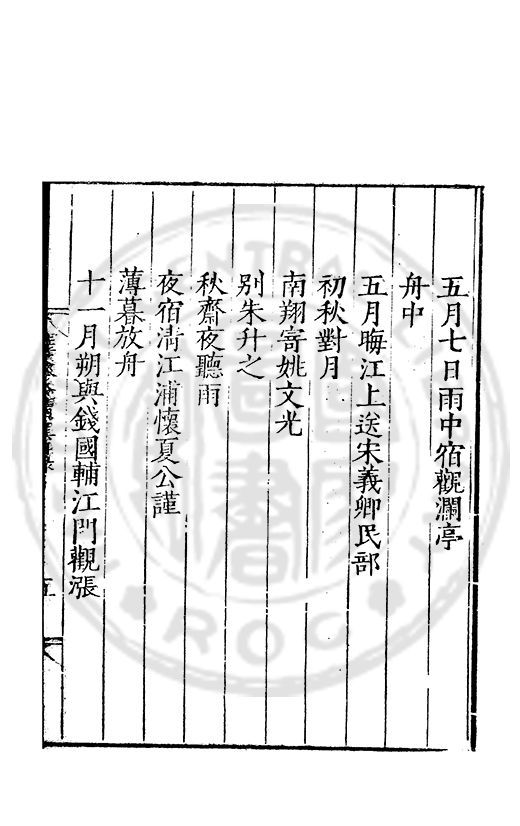 五月七日雨中宿觀瀾亭
舟中
五月晦江上送宋義卿民部
初秋對月
南翔寄姚文光
別朱升之
秋齋夜聽雨
夜宿淸江浦懷夏公謹
薄暮放舟
十一月朔與錢國輔江門觀漲
五